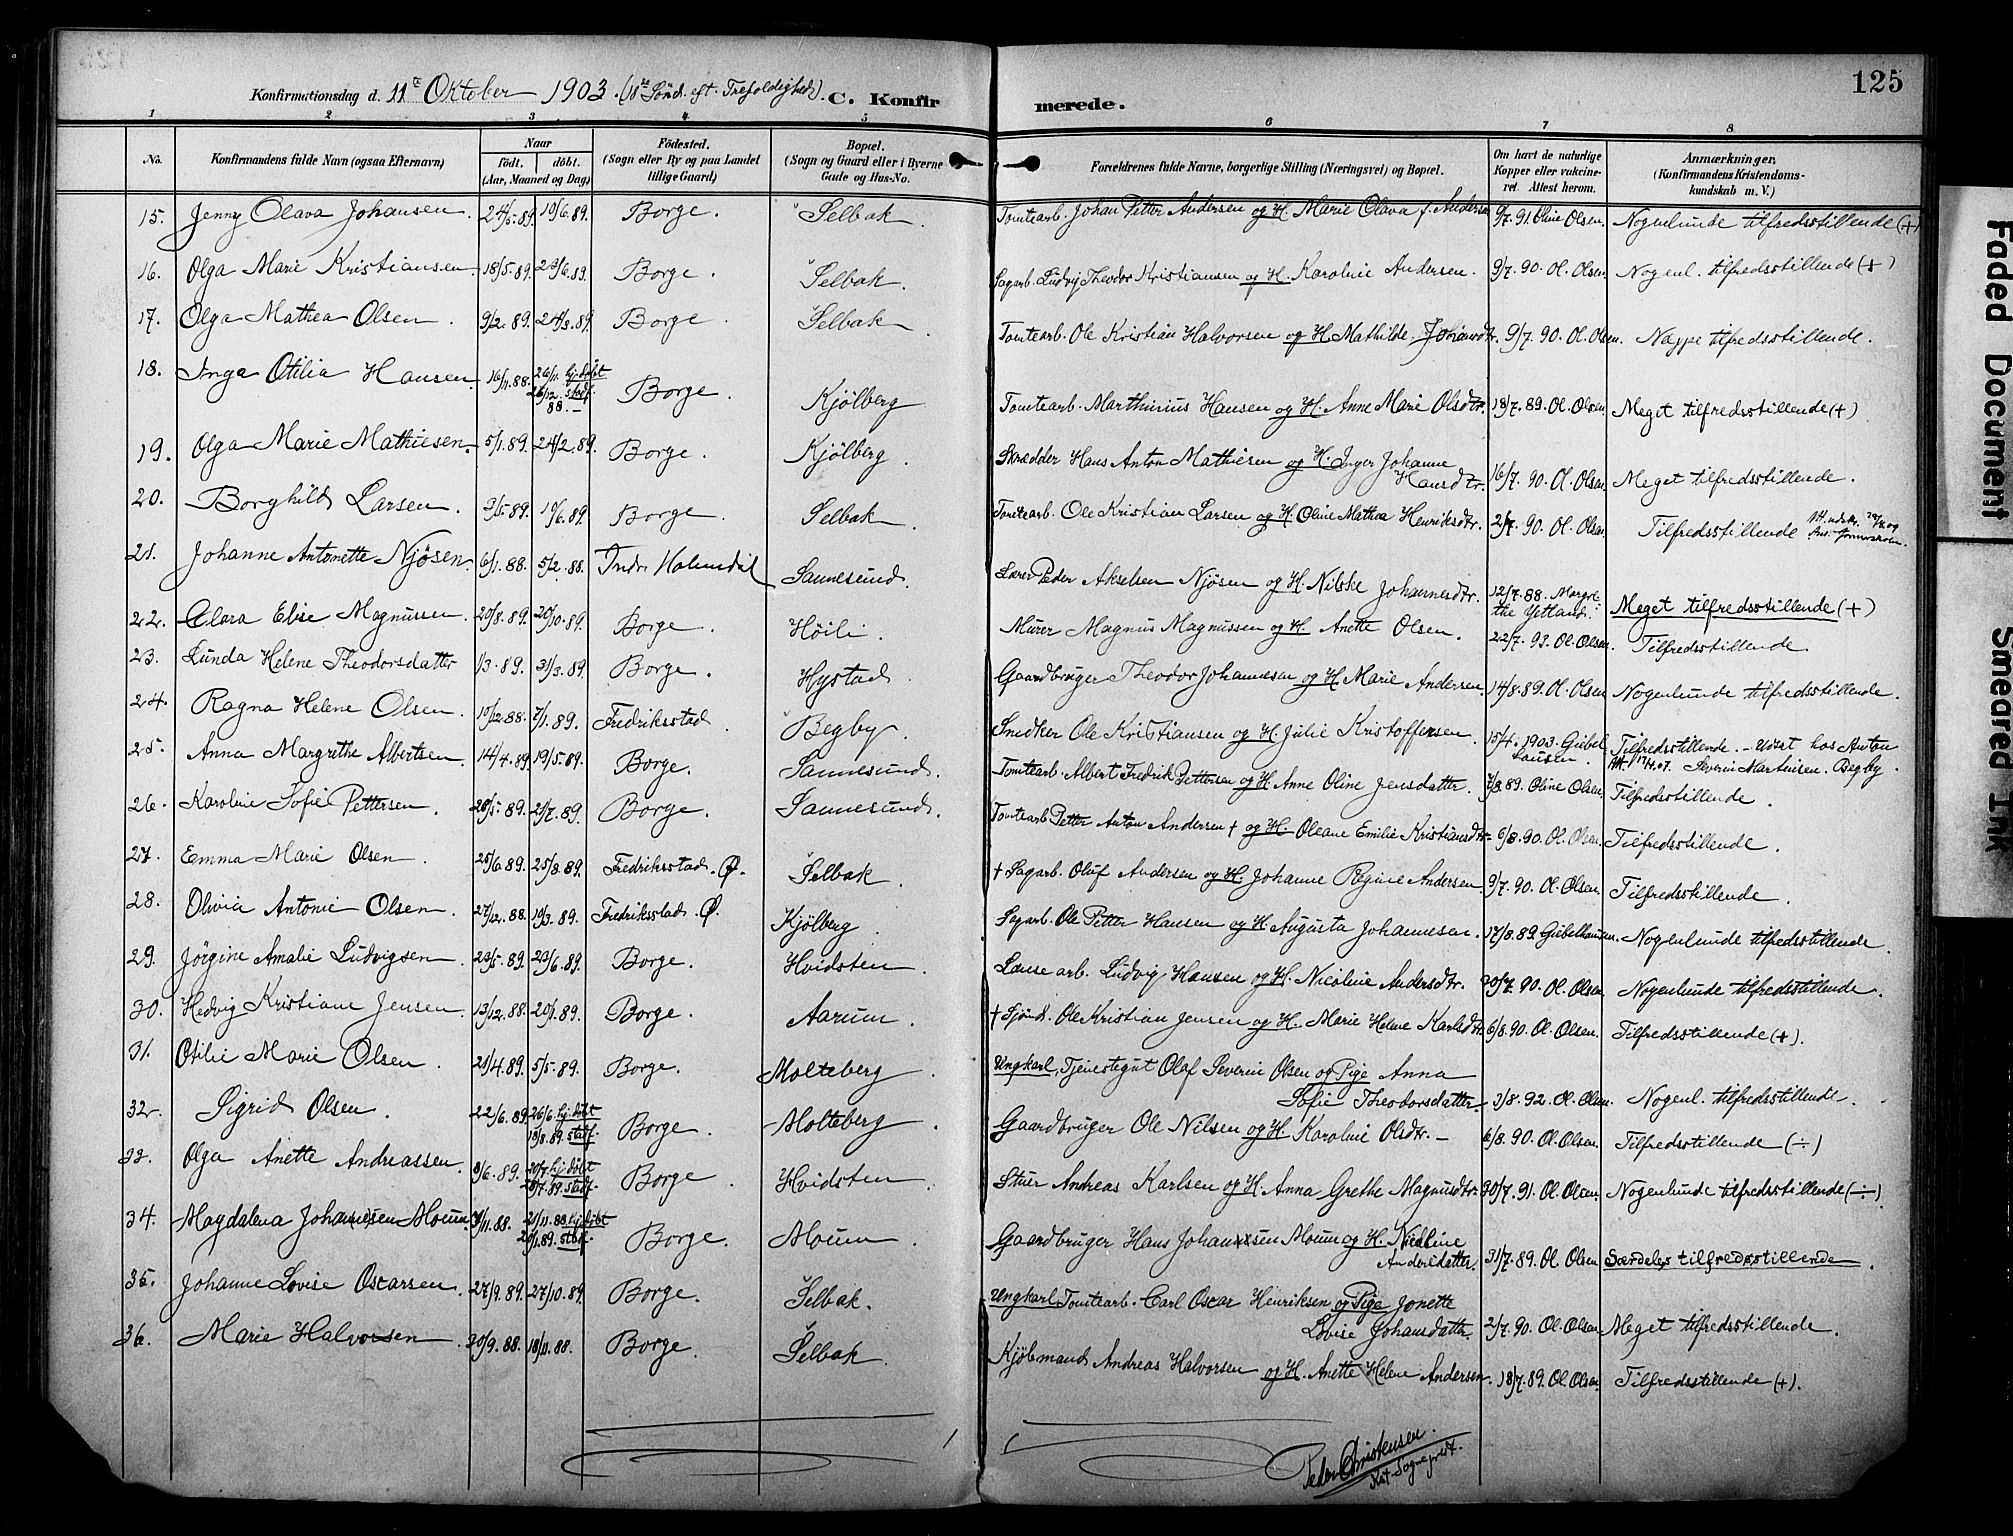 125
Konfirmationsdag d. 11te Oktober 1903. (18de Sönd. eft. Trefoldighed). C. Konfirmerede.
1 2 3 4 5 6 7 8
No. Konfirmandens fulde Navn (ogsaa Efternavn) Naar födt. döbt. (Aar, Maaned og Dag) Födested. (Sogn eller By og paa Landet tillige Gaard) Bopæl. (Sogn og Gaard eller i Byerne Gade og Hus-No. Forældrenes fulde Navne, borgerlige Stilling (Næringsvei) og Bopæl. Om havt de naturlige Kopper eller vakcineret. Attest herom. Anmærkninger. (Konfirmandens Kristendomskundskab m. V.)
15. Jenny Olava Johansen. 24/5.89. 10/6.89. Borge. Selbak. Tomtearb. Johan Petter Andersen og H. Marie Olava f. Andersen 9/7.91. Oline Olsen. Nogenlunde tilfredsstillende (+)
16. Olga Marie Kristiansen. 18/5.89. 23/6.89. Borge. Selbak. Sagarb. Ludvig Theodor Kristiansen og H. Karoline Andersen. 9/7.90. Ol. Olsen. Nogenl. tilfredsstillende (+)
17. Olga Mathea Olsen. 9/2.89. 24/3.89. Borge. Selbak. Tomtearb. Ole Kristian Halvorsen og H. Mathilde Johansdtr. 9/7.90. Ol. Olsen. Neppe tilfredsstillende.
18. Inga Otilia Hansen. 16/11.88. 26/11. hj.döbt 26/12. stadf. 88. Borge. Kjölberg Tomtearb. Marthinius Hansen og H. Anne Marie Olsdtr. 18/7.89. Ol. Olsen. Meget tilfredsstillende (+)
19. Olga Marie Mathiesen. 5/1.89. 24/2.89. Borge. Kjölberg. Skrædder Hans Anton Mathiesen og H. Inger Johanne Hansdtr. 16/7.90. Ol. Olsen. Meget tilfredsstillende.
20. Borghild Larsen. 3/5.89. 10/6.89. Borge. Selbak. Tomtearb. Ole Kristian Larsen og H. Oline Mathea Henriksdtr. 2/7.90. Ol. Olsen. Tilfredsstillende
21. Johanne Antonette Njösen. 6/1.88. 5/2.88. Indr Holmedal Sannesund. Lærer Peder Akselsen Njösen og H. Nilske Johannesdtr. 12/7.88. Margrethe Ytland. Meget tilfredsstillende (+)
22. Clara Elise Magnussen. 20/8.89. 20/10.89. Borge. Höili. Murer Magnus Magnussen og H. Anette Olsen. 22/7.93. Ol. Olsen. Tilfredsstillende.
23. Lunda Helene Theodorsdatter 1/3.89. 31/3.89. Borge. Hystad. Gaardbruger Theodor Johannesen og H. Marie Andersen. 14/8.89. Ol. Olsen Nogenlunde tilfredsstillende.
24. Ragna Helene Olsen. 10/12.88. 7/1.89. Fredriksstad. Begby. Snedker Ole Kristiansen og H. Julie Kristoffersen. 15/4.1903. Giebelhausen. Tilfredsstillende. – Udsat hos Anton Severin Martinisen. Begby.
25. Anna Margrethe Albertsen. 14/4.89. 19/5.89. Borge. Sannesund. Tomtearb. Albert Fredrik Pettersen og H. Anne Oline Jensdatter. 7/8.89. Oline Olsen. Tilfredsstillende.
26. Karoline Sofie Pettersen. 28/5.89. 21/7.89. Borge. Sannesund. Tomtearb Petter Anton Andersen + og H. Oleane Emilie Kristiansdtr. 6/8.90. Ol. Olsen. Tilfredsstillende.
27. Emma Marie Olsen. 25/6.89. 25/8.89. Fredriksstad. Ø. Selbak. + Sagarb. Oluf Andersen og H. Johanne Regine Andersen. 9/7.90. Ol. Olsen. Tilfredsstillende.
28. Olivia Antonie Olsen. 27/12.88. 10/3.89. Fredriksstad. Ø. Kjölberg. Sagarb. Ole Petter Hansen og H. Augusta Johannesen. 17/8.89. Giebelhausen. Nogenlunde tilfredsstillende.
29. Jörgine Amalie Ludvigsen. 23/5.89. 23/6.89. Borge. Hvidsten. Lænsearb. Ludvig Hansen og H. Nicoline Andersdtr. 30/7.90. Ol. Olsen. Nogenlunde tilfredsstillende.
30. Hedvig Kristiane Jensen. 13/12.88. 20/1.89. Borge. Aarum. + Sjömd. Ole Kristian Jensen og H. Marie Helene Karlsdtr. 6/8.90. Ol. Olsen. Tilfredsstillende (+).
31. Otilie Marie Olsen. 21/4.89. 5/5.89. Borge. Molteberg. Ungkarl, Tjenestegut Olaf Severin Olsen og Pige Anna Sofie Theodorsdatter. 3/8.92. Ol. Olsen. Nogenl. tilfredsstillende.
32. Sigrid Olsen. 22/6.89. 26/6. hj.döbt 18/8.89. stadf. Borge. Molteberg. Gaardbruger Ole Nilsen og H. Karoline Olsdtr. – 6/8.90. Ol. Olsen. Tilfredsstillende (÷)
33. Olga Anette Andreassen. 8/6.89. 20/7. hj.döbt 28/7.89. stadf. Borge. Hvidsten. Stuer Andreas Karlsen og H. Anna Grethe Magnusdtr. 30/7.91. Ol. Olsen. Nogenlunde tilfredsstillende (÷).
34. Magdalena Johannesen Moum. 9/11.88. 21/11.88. hj.döbt 20/1.89. stadf. Borge. Moum. Gaardbruger Hans Johannesen Moum og H. Nicoline Andreasdatter. 31/7.89. Ol. Olsen Særdeles tilfredsstillende.
35. Johanne Lovise Oscarsen. 27/9.89. 27/10.89. Borge. Selbak. Ungkarl Tomtearb. Carl Oscar Henriksen og Pige Jonette Lovise Johansdattr. 2/7.90. Ol. Olsen. Meget tilfredsstillende.
36. Marie Halvorsen 30/9.88. 18/11.88. Borge. Selbak. Kjöbmand Andreas Halvorsen og H. Anette Helene Andersen. 18/7.89. Ol. Olsen. Tilfredsstillende (+).
Peder Christensen.
Kst. Sogneprest.
Faded Document
Smeared Ink